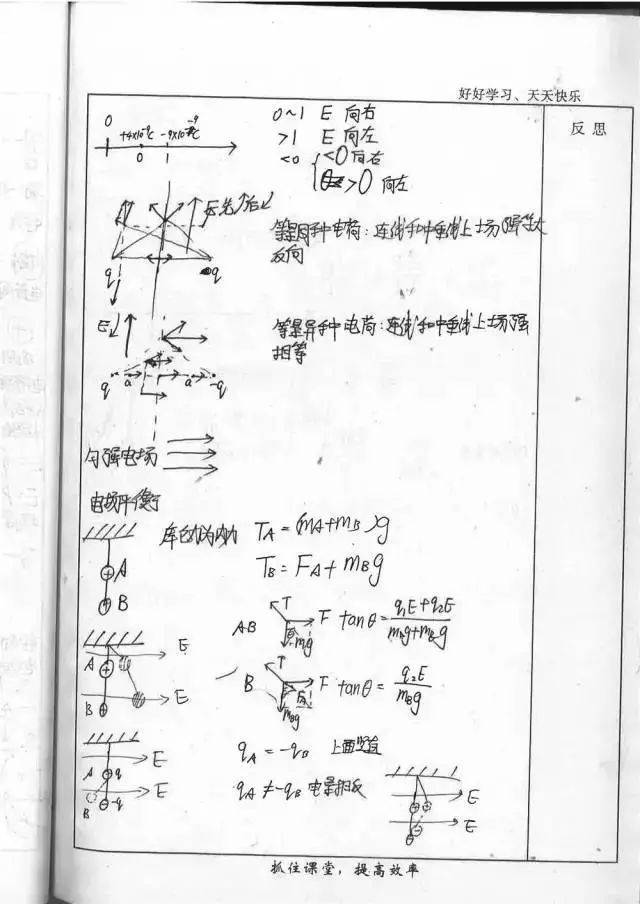 好好学习、天天快乐
反思
0~1 E 向右
>1 E 向左
<0 { <0 向右
>0 向左
0
0 1
E先↑后↓
q q
等量同种电荷：连线和中垂线上场强等大
反向
E↓
等量异种电荷：连线和中垂线上场强
相等
q a a -q
匀强电场
电场平衡
A
B
库仑力为内力 T_A=(m_A+m_B)g
T_B=F_A+m_Bg
AB T F mg tanθ=(q₁E+q₂E)/(m_Ag+m_Bg)
A E
B E
B T F m_Bg tanθ=q₂E/m_Bg
q_A=-q_B 上面竖直
q_A≠-q_B 电量相反
E
A q
E
B -q
E
E
抓住课堂，提高效率